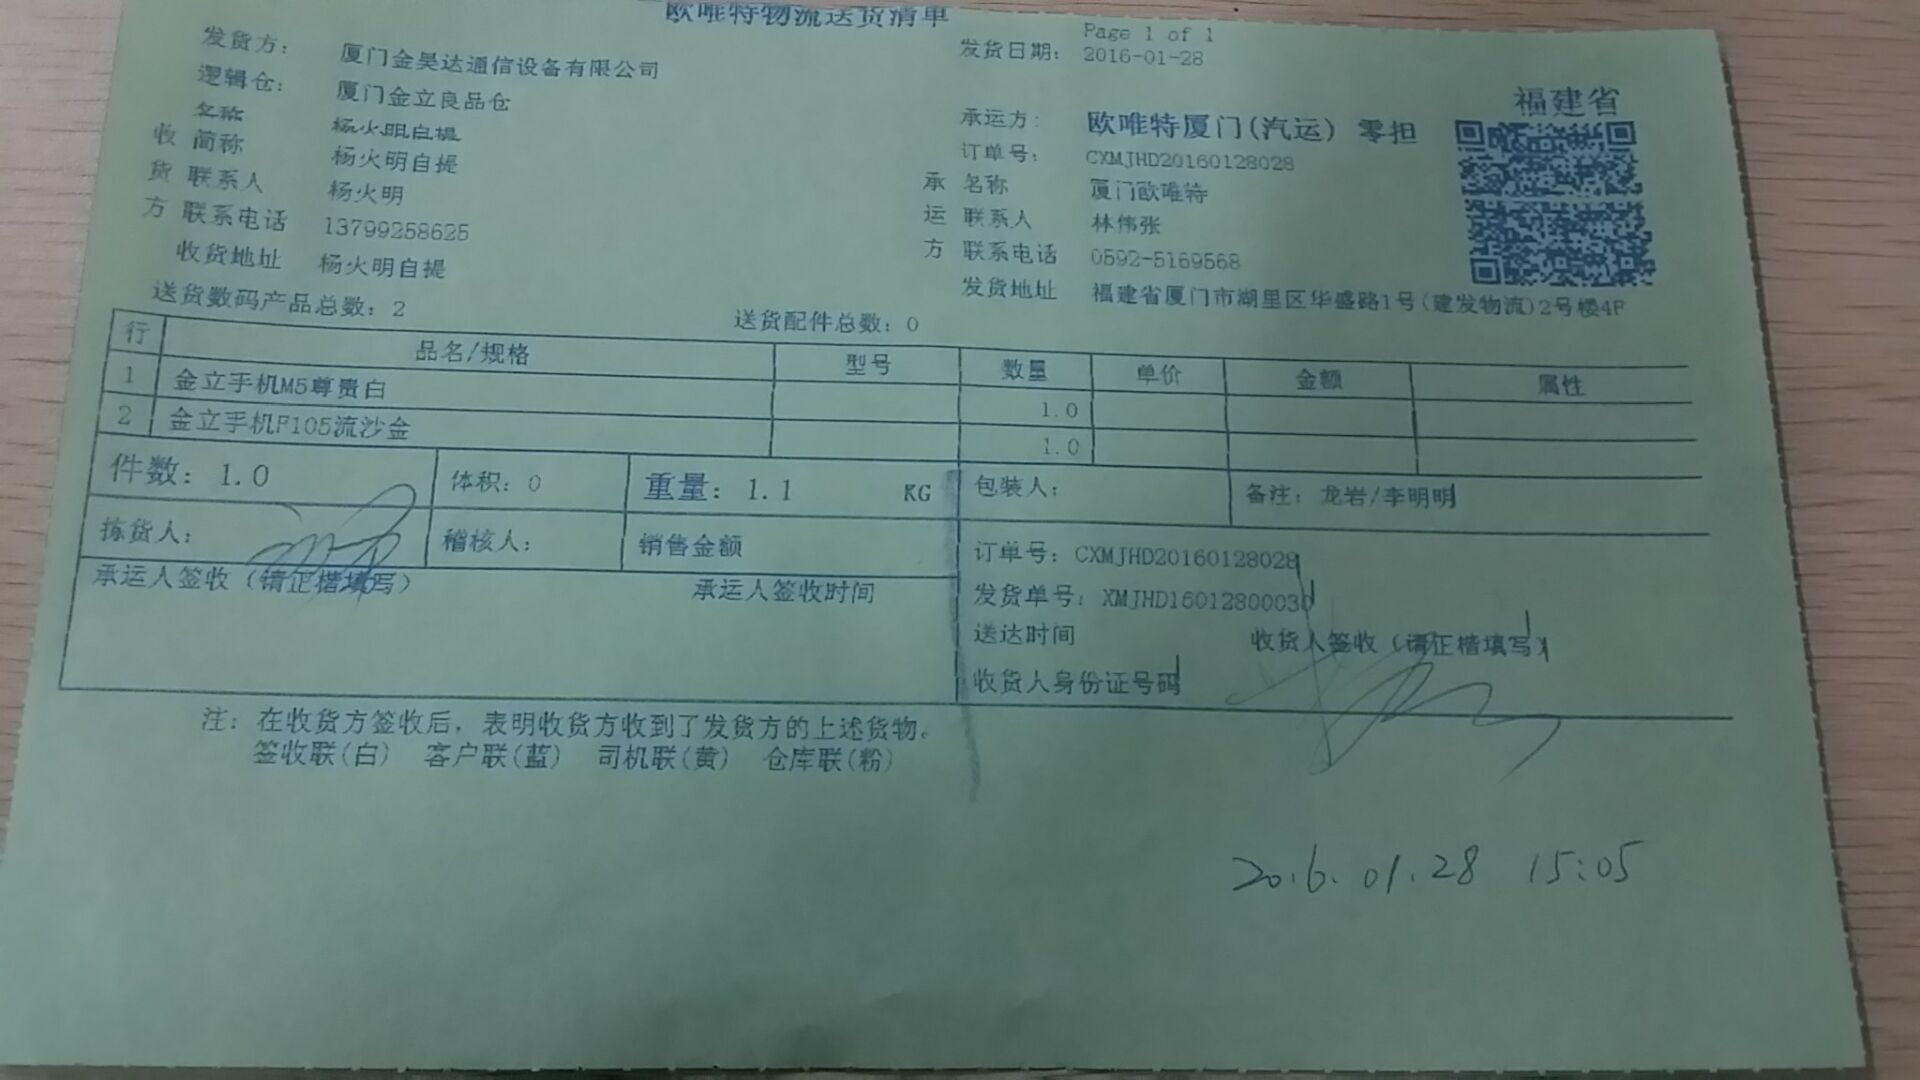 欧唯特物流送货清单
Page 1 of 1
发货方: 厦门金昊达通信设备有限公司 发货日期: 2016-01-28
逻辑仓: 厦门金立良品仓
福建省
名称 杨火明自提 承运方: 欧唯特厦门(汽运) 零担
收 简称 杨火明自提 订单号: CXMJHD20160128028
货 联系人 杨火明 承 名称 厦门欧唯特
方 联系电话 13799258625 运 联系人 林伟张
收货地址 杨火明自提 方 联系电话 0592-5169568
发货地址 福建省厦门市湖里区华盛路1号(建发物流)2号楼4F
送货数码产品总数: 2 送货配件总数: 0
行 品名/规格 型号 数量 单价 金额 属性
1 金立手机M5尊贵白 1.0
2 金立手机F105流沙金 1.0
件数: 1.0 体积: 0 重量: 1.1 KG 包装人: 备注: 龙岩/李明明
拣货人: 稽核人: 销售金额 订单号: CXMJHD20160128028
承运人签收(请正楷填写) 承运人签收时间 发货单号: XMJHD16012800030
送达时间 收货人签收(请正楷填写)
收货人身份证号码
注: 在收货方签收后, 表明收货方收到了发货方的上述货物。
签收联(白) 客户联(蓝) 司机联(黄) 仓库联(粉)
2016.01.28 15:05